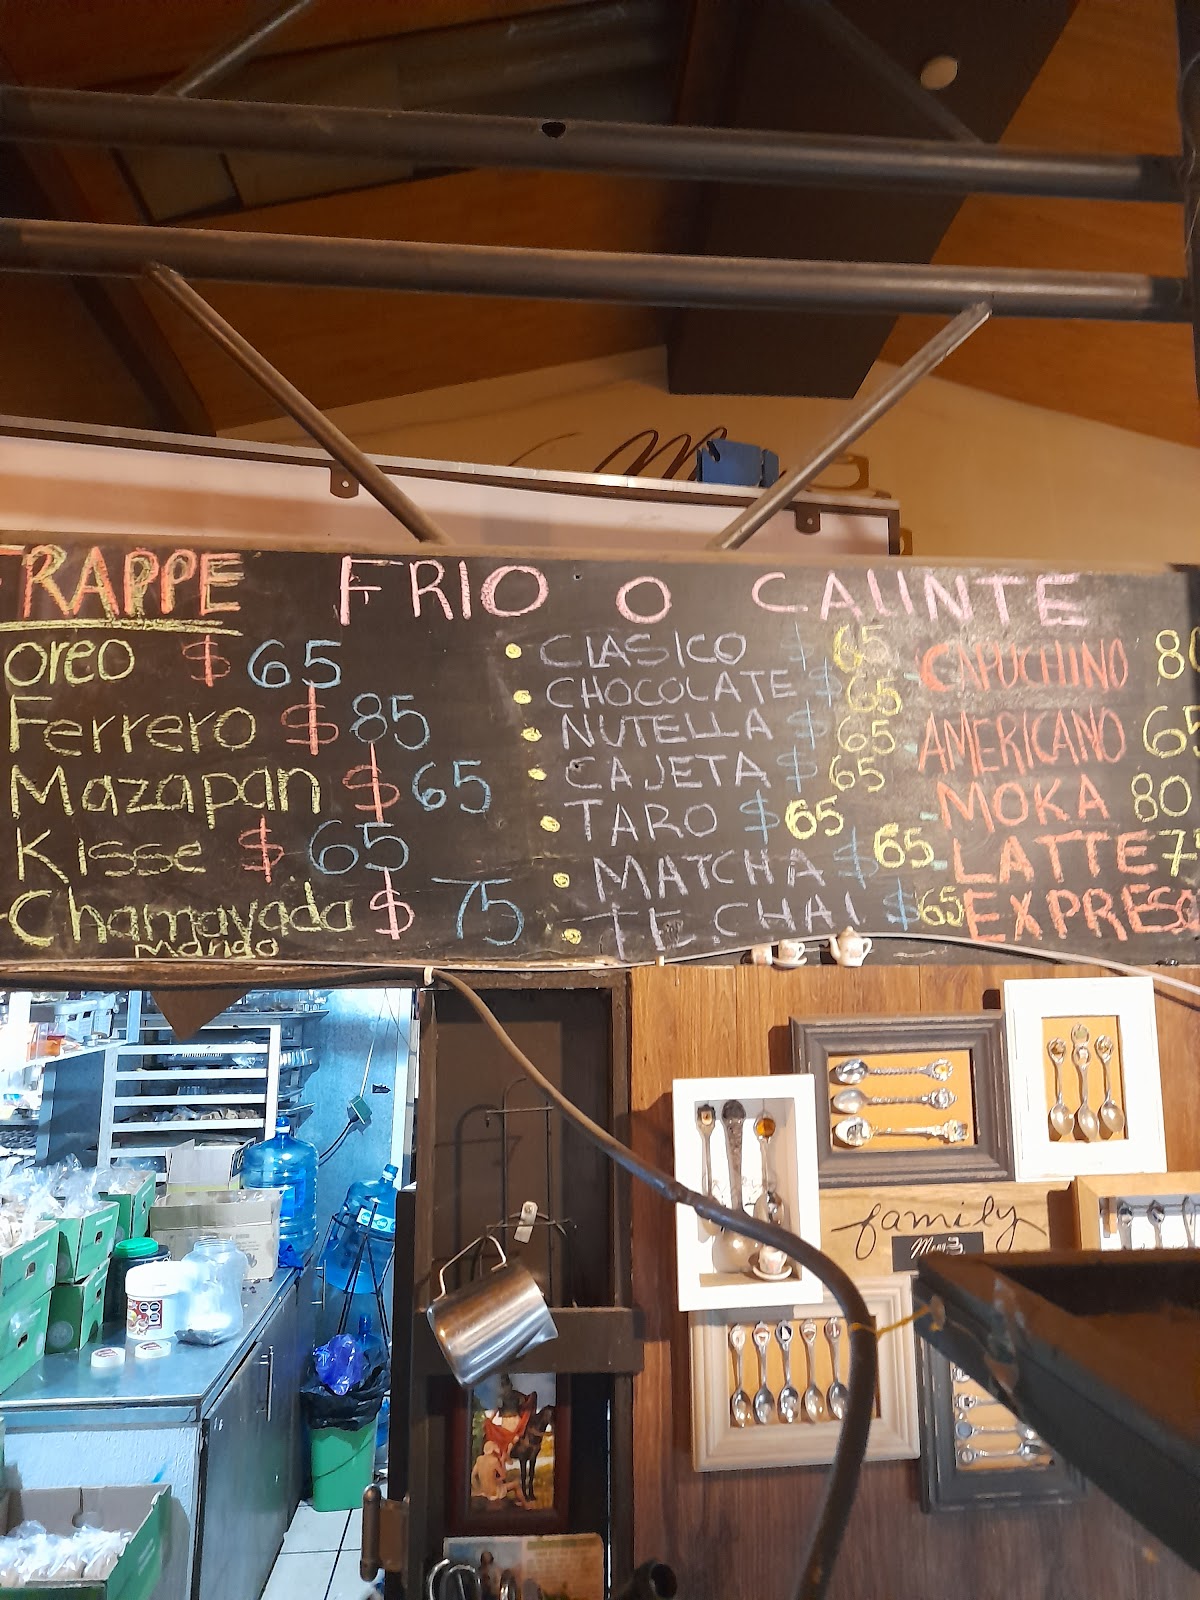 FRAPPE
Oreo $ 65
Ferrero $ 85
Mazapan $ 65
Kisse $ 65
Chamayada $ 75
Mango
FRIO O CALINTE
CLASICO $ 65
CHOCOLATE $ 65
NUTELLA $ 65
CAJETA $ 65
TARO $ 65
MATCHA $ 65
TE CHAI $ 65
CAPUCHINO 80
AMERICANO 65
MOKA 80
LATTE 75
EXPRESO
family